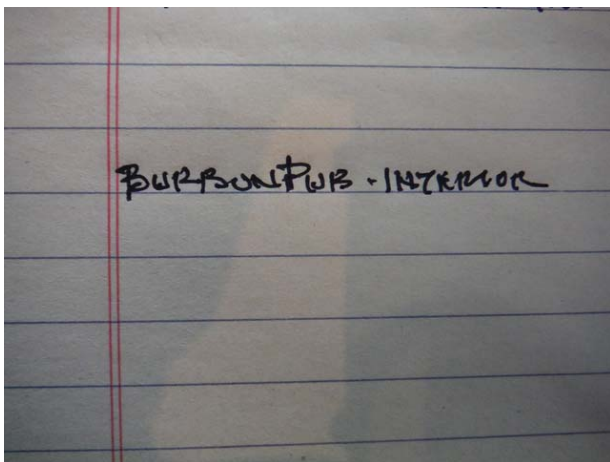 BURBUNPUB - INTERIOR